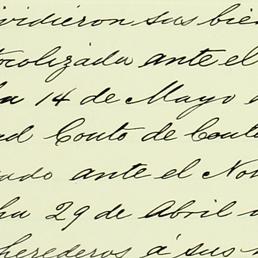 vidieron sus bie
ocolizada ante el
ha 14 de Mayo
ad Couto de Couto
ado ante el No
ha 29 de Abril
herederos á sus